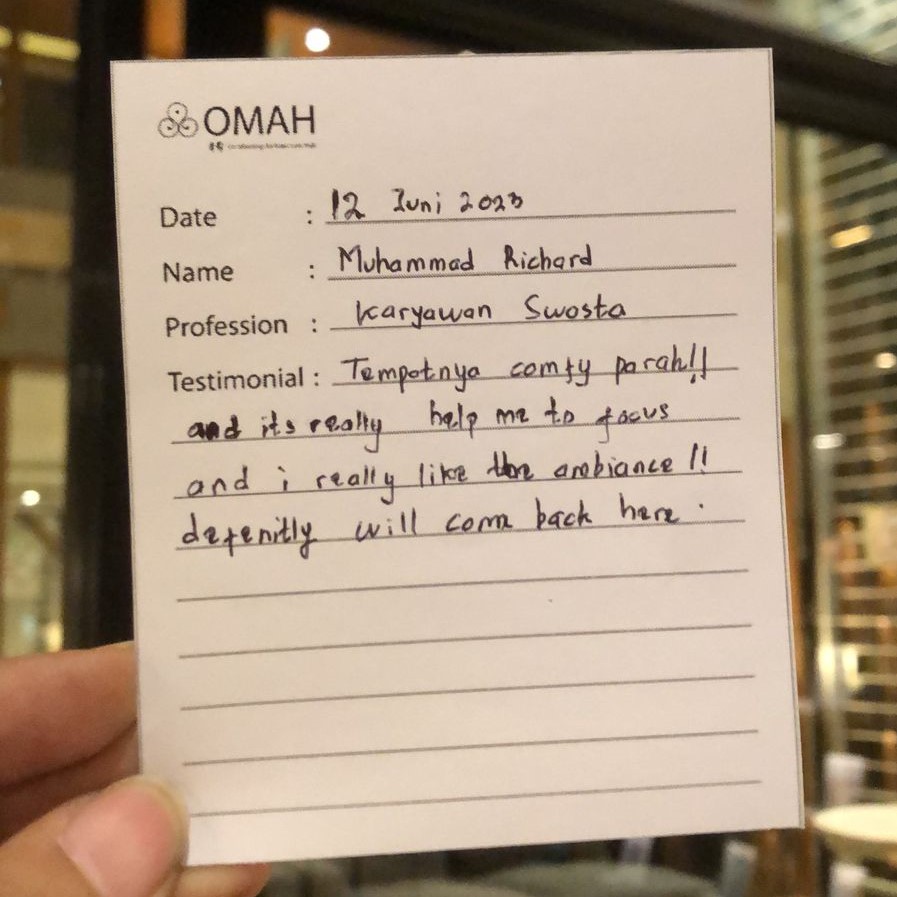 OMAH
Date : 12 Juni 2023
Name : Muhammad Richard
Profession : Karyawan Swasta
Testimonial : Tempatnya comfy parah!!
and its really help me to focus
and i really like the ambiance !!
defenitly will come back here.